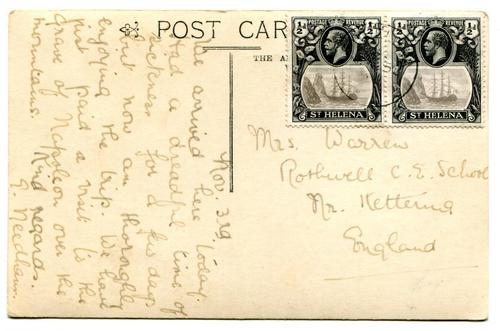 POST CAR
THE A
POSTAGE REVENUE
½ ½
ST HELENA
POSTAGE REVENUE
½ ½
ST HELENA
Nov. 3rd
We arrived here today.
Had a dreadful time of
sickness for a few days
but now am thoroughly
enjoying the trip. We have
just paid a visit to the
grave of Napoleon over the
mountains. Kind regards.
E. Needham.
Mrs. Warren
Rothwell C. E. School
Nr. Kettering
England